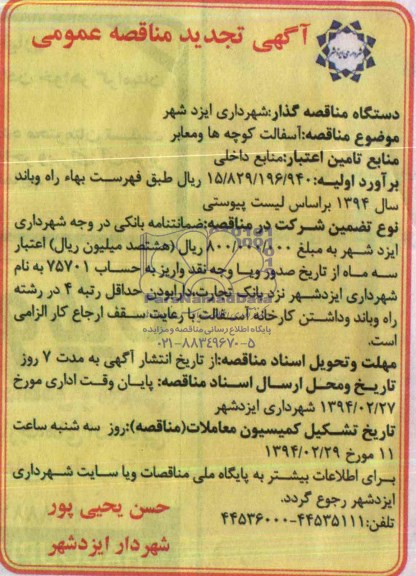 آگهی تجدید مناقصه عمومی
دستگاه مناقصه گذار:شهرداری ایزد شهر
موضوع مناقصه:آسفالت کوچه ها ومعابر
منابع تامین اعتبار:منابع داخلی
برآورد اولیه:۱۵/۸۲۹/۱۹۶/۹۴۰ ریال طبق فهرست بهاء راه وباند
سال ۱۳۹۴ براساس لیست پیوستی
نوع تضمین شرکت در مناقصه:ضمانتنامه بانکی در وجه شهرداری
ایزد شهر به مبلغ ۸۰۰/۰۰۰/۰۰۰ ریال (هشتصد میلیون ریال) اعتبار
سه ماه از تاریخ صدور ویا وجه نقد واریز به حساب ۷۵۷۰۱ به نام
شهرداری ایزدشهر نزد بانک تجارت،دارابودن حداقل رتبه ۴ در رشته
راه وباند وداشتن کارخانه آسفالت با رعایت سقف ارجاع کار الزامی
است.
پایگاه اطلاع رسانی مناقصه و مزایده
۰۲۱-۸۸۳۴۹۶۷۰-۵
مهلت وتحویل اسناد مناقصه:از تاریخ انتشار آگهی به مدت ۷ روز
تاریخ ومحل ارسال اسناد مناقصه: پایان وقت اداری مورخ
۱۳۹۴/۰۲/۲۷ شهرداری ایزدشهر
تاریخ تشکیل کمیسیون معاملات(مناقصه):روز سه شنبه ساعت
۱۱ مورخ ۱۳۹۴/۰۲/۲۹
برای اطلاعات بیشتر به پایگاه ملی مناقصات ویا سایت شهرداری
ایزدشهر رجوع گردد.
تلفن:۴۴۵۳۵۱۱۱-۴۴۵۳۶۰۰۰
حسن یحیی پور
شهردار ایزدشهر